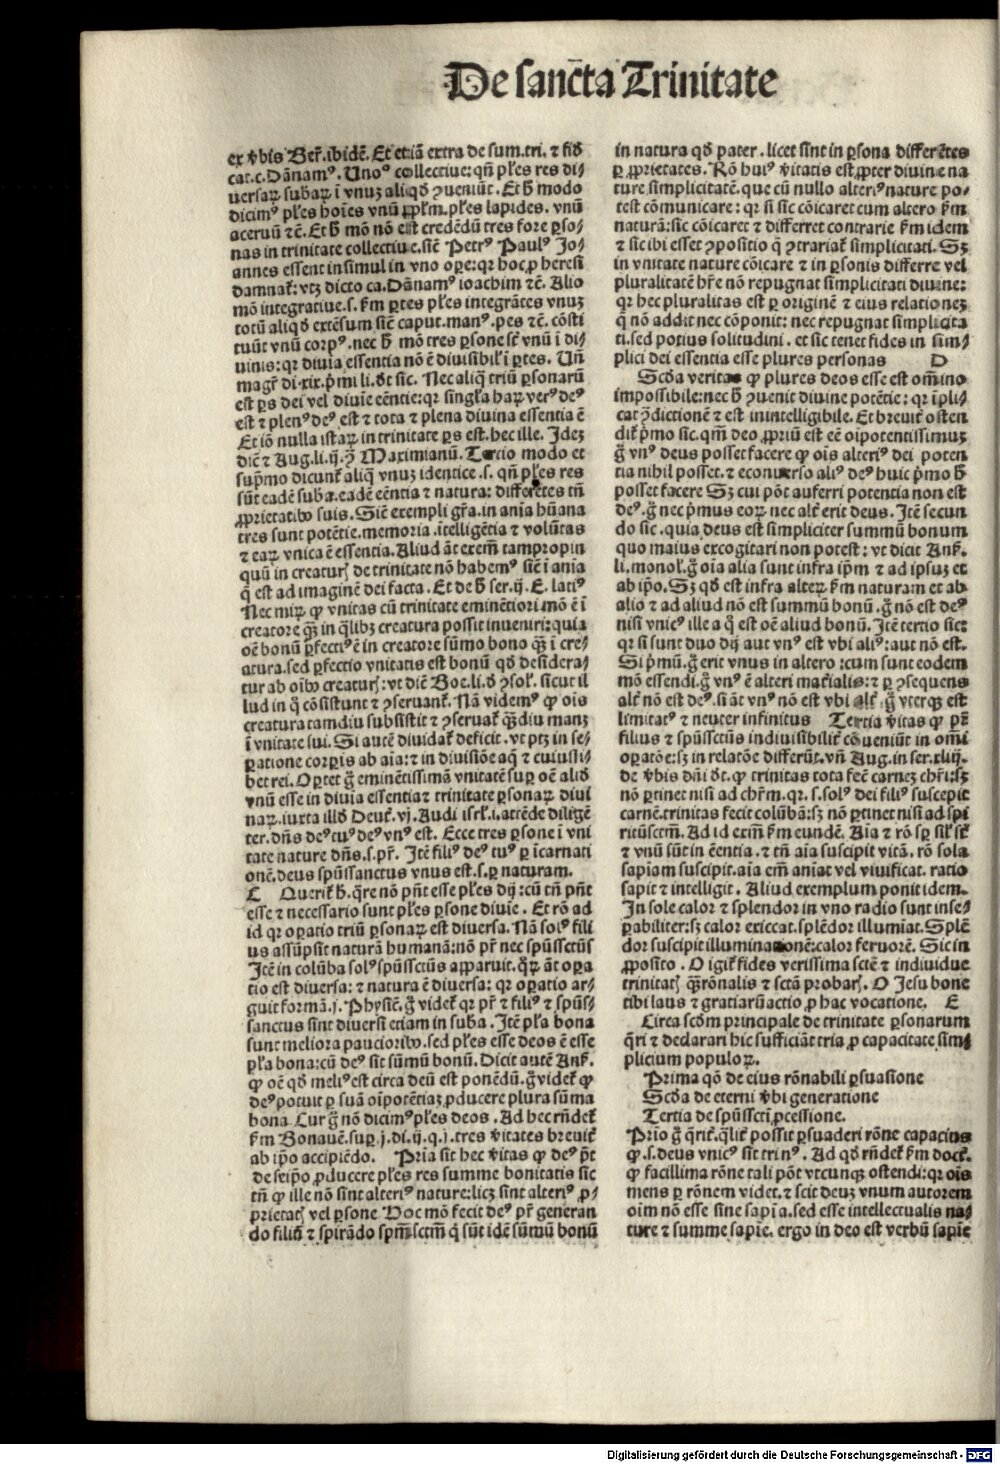 De sancta Trinitate
ex v̄bis Ber̄.ibidē. Et etiā extra de sum.tri. ⁊ fid
cat.c.Dānamꝰ. Unoᵒ collectiue:qn̄ pl̄es res di/
uersaꝝ subaꝝ ī vnuz aliqd̄ ꝯueniūt. Et h̄ modo
dicimꝰ pl̄es hoīes vnū pp̄lm.pl̄es lapides. vnū
aceruū ⁊c̄. Et h̄ mō nō est credēdū tres fore ꝑso/
nas in trinitate collectiue.sic̄ Petrꝰ Paulꝰ Jo/
annes essent insimul in vno oꝑe:qꝛ hoc ꝓ heresi
damnat̄:vtz dicto ca.Dānamꝰ ioachim ⁊c̄. Alio
mō integratiue.s. ẜm ꝑtes pl̄es integrātes vnuz
totū aliqd̄ extēsum sic̄ caput.manꝰ.pes ⁊c̄. cōsti
tuūt vnū corpꝰ.nec h̄ mō tres ꝑsone sc̄t vnū ī di/
uinis:qꝛ diuīa essentia nō ē diuisibil̄ ī ꝑtes. Un̄
magr̄ di.xix.p̄mi li.dt̄ sic. Nec aliq̄ triū ꝑsonarū
est ꝑs dei vel diuīe eēntie:qꝛ singl̄a haꝝ verꝰ deꝰ
est ⁊ plenꝰ deꝰ est ⁊ tota ⁊ plena diuina essentia ē
Et iō nulla istaꝝ in trinitate ꝑs est.hec ille. Idez
dic̄ ⁊ Aug.li.ij.ꝯ̄ Maximianū. Tercio modo et
sup̄mo dicunt̄ aliq̄ vnuz identice.s. qn̄ pl̄es res
sūt eadē suba.eadē eēntia ⁊ natura: differētes tn̄
ꝓprietatibꝰ suis. Sic̄ exempli gr̄a.in aīa hūana
tres sunt potētie.memoria.ītelligētia ⁊ volūtas
⁊ eaꝝ vnica ē essentia. Aliud āt exem̄ tampropin
quū in creaturꝭ de trinitate nō habemꝰ sic̄ ī aīa
q̄ est ad imaginē dei facta. Et de h̄ ser.ij. E. latiꝰ
Nec miꝝ ꝙ vnitas cū trinitate eminētiori mō ē ī
creatore qꝫ̄ in q̄libꝫ creatura possit inueniri:quia
oē bonū ꝑfectiꝰ ē in creatore sūmo bono qꝫ̄ ī cre/
atura.sed ꝑfectio vnitatis est bonū qd̄ desidera/
tur ab oībꝰ creaturꝭ:vt dic̄ Boe.li.d̄ ꝯsol. sicut il
lud in q̄ cōsistunt ⁊ ꝯseruant̄. Nā videmꝰ ꝙ oīs
creatura tamdiu subsistit ⁊ ꝯseruat̄ qꝫ̄diu manz
ī vnitate sui. Si autē diuidat̄ deficit. vt ptz in se/
ꝑatione corpīs ab aīa: ⁊ in diuisiōe aq̄ ⁊ cuiussi/
bet rei. Oꝑtet g̊ eminētissimā vnitatē suꝑ oē aliō
vnū esse in diuīa essentia ⁊ trinitate ꝑsonaꝝ diui
naꝝ.iuxta illō Deut̄.vj. Audi isrl̄.i.attēde diligē
ter.dn̄s deꝰ tuꝰ deꝰ vnꝰ est. Ecce tres ꝑsone ī vni
tate nature dn̄s.s.pr̄. Itē filiꝰ deꝰ tuꝰ ꝑ īcarnati
onē.deus spūssanctus vnus est.s.ꝑ naturam.
C Querit̄ h̄.q̄re nō pn̄t esse pl̄es dij:cū tn̄ pn̄t
esse ⁊ necessario sunt pl̄es ꝑsone diuīe. Et rō ad
id qꝛ oꝑatio triū ꝑsonaꝝ est diuersa. Nā solꝰ fili
us assūpsit naturā humanā:nō pr̄ nec spūssctūs
Itē in colūba solꝰ spūssctūs apparuit.q̄ꝝ āt oꝑa
tio est diuersa: ⁊ natura ē diuersa: qꝛ oꝑatio ar/
guit formā.j. Physic̄.g̊ videt̄ qꝛ pr̄ ⁊ filiꝰ ⁊ spūs/
sanctus sint diuersi etiam in suba. Itē pl̄a bona
sunt meliora pauciorībꝰ.sed pl̄es esse deos ē esse
pl̄a bona:cū deꝰ sit sūmū bonū. Dicit autē Anẜ.
ꝙ oē qd̄ meliꝰ est circa deū est ponēdū.g̊ videt̄ ꝙ
deꝰ potuit ꝑ suā oīpotētiaz ꝓducere plura sūma
bona. Cur g̊ nō dicimꝰ pl̄es deos. Ad hec rn̄det̄
ẜm Bonauē.suꝑ.j.di.ij.q.j.tres v̄itates breuit̄
ab ip̄o accipiēdo. Pria sit hec v̄itas ꝙ deꝰ p̄t
de seip̄o ꝓducere pl̄es res summe bonitatis sic
tn̄ ꝙ ille nō sint alteriꝰ nature:licz sint alteriꝰ ꝓ/
prietatꝭ vel ꝑsone Hoc mō fecit deꝰ pr̄ generan
do filiū ⁊ spirādo spm̄sctm̄ q̄ sūt idē sūmū bonū
in natura qd̄ pater. licet sint in ꝑsona differētes
ꝑ ꝓprietates. Rō huiꝰ v̄itatis est ꝓpter diuine na
ture simplicitatē.que cū nullo alteriꝰ nature po/
test cōmunicare: qꝛ si sic cōicaret cum altero ẜm
naturā:sic cōicaret ⁊ differret contrarie ẜm idem
⁊ sic ibi esset ꝯpositio q̄ ꝯtrariat̄ simplicitati. Sꝫ
in vnitate nature cōicare ⁊ in ꝑsonis differre vel
pluralitatē hr̄e nō repugnat simplicitati diuine:
qꝛ hec pluralitas est ꝑ originē ⁊ eius relationez
q̄ nō addit nec cōponit: nec repugnat simplicita
ti.sed potius solitudini. et sic tenet fides in sim/
plici dei essentia esse plures personas D
Scd̄a veritas ꝙ plures deos esse est om̄ino
impossibile:nec h̄ ꝯuenit diuine potētie: qꝛ īpli/
cat ꝯdictionē ⁊ est inintelligibile. Et breuit̄ osten
dit̄ p̄mo sic. qm̄ deo ꝓpriū est eē oīpotentissimuz
g̊ vnꝰ deus posset facere ꝙ oīs alteriꝰ dei poten
tia nihil posset. ⁊ econuerso aliꝰ deꝰ huic p̄mo h̄
posset facere Sꝫ cui pōt auferri potentia non est
deꝰ.g̊ nec p̄mus eoꝝ nec alt̄ erit deus. Itē secun
do sic. quia deus est simpliciter summū bonum
quo maius excogitari non potest: vt dicit Anẜ.
li.monol̄.g̊ oīa alia sunt infra ip̄m ⁊ ad ipsuz et
ab ip̄o. Sꝫ qd̄ est infra alteꝝ ẜm naturam et ab
alio ⁊ ad aliud nō est summū bonū.g̊ nō est deꝰ
nisi vnicꝰ ille a q̄ est oē aliud bonū. Itē tertio sic:
qꝛ si sunt duo dij aut vnꝰ est vbi aliꝰ:aut nō est.
Si p̄mū.g̊ erit vnus in altero:cum sunt eodem
mō essendi.g̊ vnꝰ ē alteri mat̄ialis: ⁊ ꝑ ꝯsequens
alt̄ nō est deꝰ.si āt vnꝰ nō est vbi alt̄ g̊ vterqꝫ est
limitatꝰ ⁊ neuter infinitus Tertia v̄itas ꝙ pr̄
filius ⁊ spūssctūs indiuisibilit̄ cōueniūt in om̄i
oꝑatōe:sꝫ in relatōe differūt.vn̄ Aug.in ser.xliij.
de v̄bis dn̄i dt̄.ꝙ trinitas tota fec̄ carnez chr̄i:sꝫ
nō ꝑtinet nisi ad chr̄m.qꝛ.s.solꝰ dei filiꝰ suscepit
carnē.trinitas fecit colūbā:sꝫ nō ꝑtinet nisi ad spi
ritūsctm̄. Ad id exm̄ ẜm eundē. Aīa ⁊ rō sꝑ sil̄ sc̄t
⁊ vnū sūt in eēntia. ⁊ tn̄ aīa suscipit vitā. rō sola
sapīam suscipit.aīa em̄ anīat vel viuificat. ratio
sapit ⁊ intelligit. Aliud exemplum ponit idem.
In sole calor ⁊ splendor in vno radio sunt inse/
ꝑabiliter:sꝫ calor exiccat.splēdor illumīat. Splē
dor suscipit illuminationē:calor feruorē. Sic in
ꝓposito. O igit̄ fides verissima sctē ⁊ indiuidue
trinitatꝭ q̄ rōnalis ⁊ sctā probarꝭ. O Jesu bone
tibi laus ⁊ gratiarū actio ꝓ hac vocatione. E
Circa scd̄m principale de trinitate ꝑsonarum
q̄ri ⁊ declarari hic sufficiāt tria ꝓ capacitate sim/
plicium populoꝝ.
Prima qō de eius rōnabili ꝑsuasione
Scd̄a de eterni v̄bi generatione
Tertia de spūsscti ꝓcessione.
Prīo g̊ q̄rit̄.q̄lit̄ possit ꝑsuaderi rōne capacius
ꝙ.s.deus vnicꝰ sit trinꝰ. Ad qd̄ rn̄det̄ ẜm doct̄.
ꝙ facillima rōne tali pōt vtcunqꝫ ostendi:qꝛ oīs
mens ꝑ rōnem videt. ⁊ scit deuz vnum autorem
oīm nō esse sine sapīa.sed esse intellectualis na/
ture ⁊ summe sapīe. ergo in deo est verbū sapīe
Digitalisierung gefördert durch die Deutsche Forschungsgemeinschaft - DFG